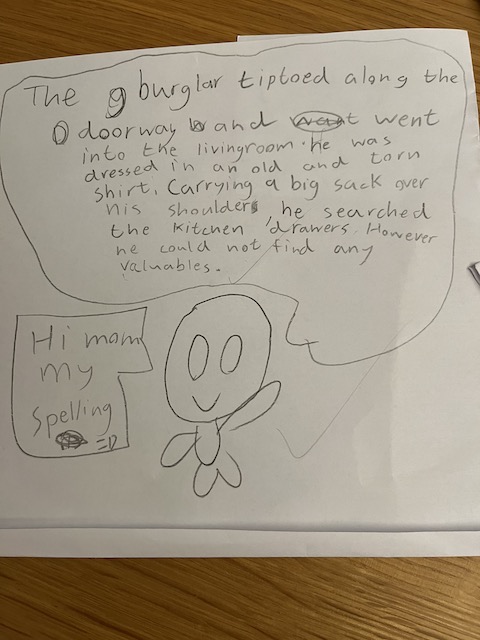 The burglar tiptoed along the
doorway and went
into the livingroom. he was
dressed in an old and torn
shirt. Carrying a big sack over
his shoulders, he searched
the kitchen drawers. However
he could not find any
valuables.
Hi mom
My
Spelling
=D